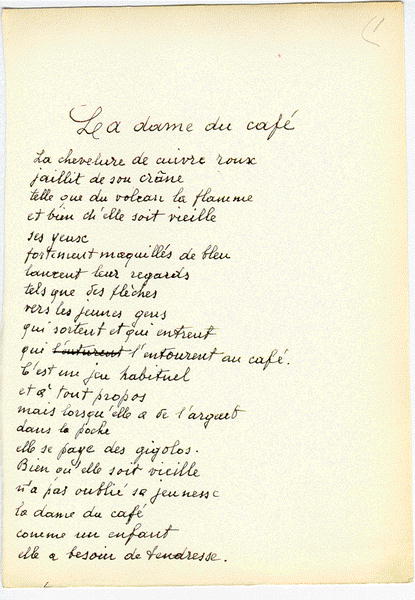 La dame du café
La chevelure de cuivre roux
jaillit de son crâne
telle que du volcan la flamme
et bien qu'elle soit vieille
ses yeux
fortement maquillés de bleu
lancent leur regards
tels que des flèches
vers les jeunes gens
qui sortent et qui entrent
qui l'entourent au café.
C'est un jeu habituel
et à tout propos
mais lorsqu'elle a de l'argent
dans la poche
elle se paye des gigolos.
Bien qu'elle soit vieille
n'a pas oublié sa jeunesse
la dame du café
comme un enfant
elle a besoin de tendresse.